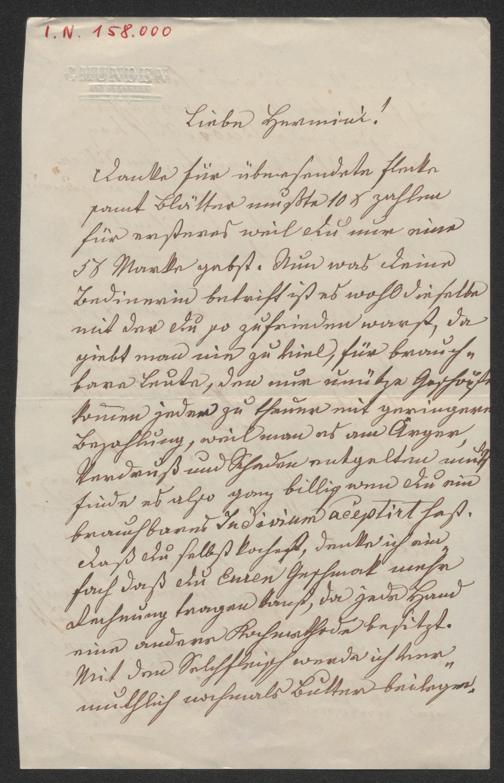 I.N. 158.000
GMUNDEN
Liebe Hermine!
Danke für übersendete Flecke
samt Blätter mußte 10 x zahlen
für ersteres weil Du nur eine
5 x Marke gabst. Nun was Deine
Bedinerin betrift ist es wohl dieselbe
mit der Du so zufrieden warst, da
giebt man nie zu viel, für brauch-
bare Leute, den nur unütze
komen jeden zu theuer mit geringere
Bezahlung, weil man es am Ärger,
Verdruß und Schaden entgelten muß
finde es also ganz billig wen Du ein
brauchbares Individium aceptirt hast.
Daß Du selbst kochest, denke ich ein
fach daß Du Euren Geschmak mehr
Rechnung tragen kanst, da jede Hand
eine andere Kochmethode besitzt.
Mit dem Selchfleisch werde ich ver-
muthlich nochmals Butter beilegen.